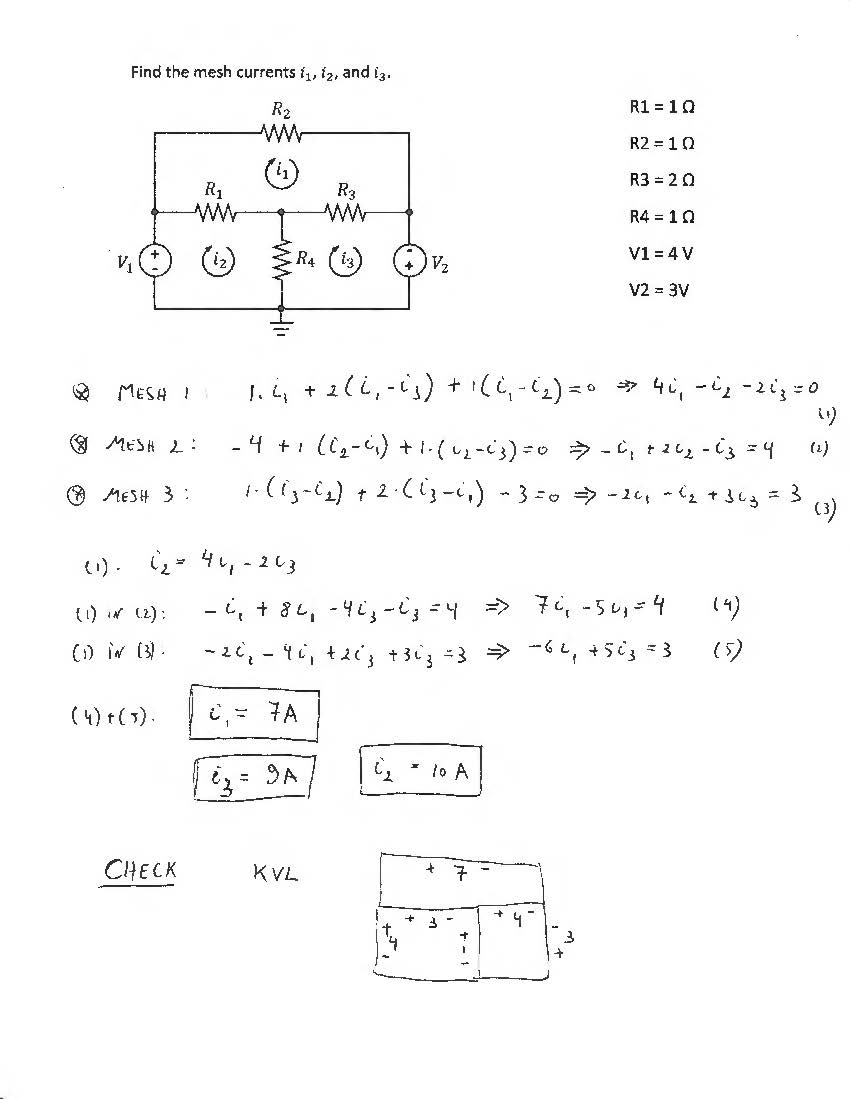 Find the mesh currents i₁, i₂, and i₃.
R₂
R1 = 1 Ω
R2 = 1 Ω
i₁
R₁ R₃
R3 = 2 Ω
R4 = 1 Ω
V₁ + - i₂ R₄ i₃ - + V₂
V1 = 4 V
V2 = 3V
⊗ MESH 1 : 1. i₁ + 2(i₁-i₃) + 1(i₁-i₂)=0 ⇒ 4i₁ -i₂ -2i₃=0
(1)
⊗ MESH 2 : -4 + 1 (i₂-i₁) + 1.(i₂-i₃)=0 ⇒ -i₁ +2i₂ -i₃ =4 (2)
⊗ MESH 3 : 1.(i₃-i₂) + 2.(i₃-i₁) - 3=0 ⇒ -2i₁ -i₂ +3i₃ = 3
(3)
(1). i₂= 4i₁ -2i₃
(1) IN (2): -i₁ + 8i₁ -4i₃-i₃ =4 ⇒ 7i₁ -5i₃=4 (4)
(1) IN (3). -2i₁ - 4i₁ +2i₃ +3i₃ =3 ⇒ -6i₁ +5i₃ =3 (5)
(4)+(5). i₁ = 7A
i₃ = 9A i₂ = 10 A
CHECK KVL
+ 7 -
+ 3 - + 4 -
+ 4 - + 1 - - 3 +